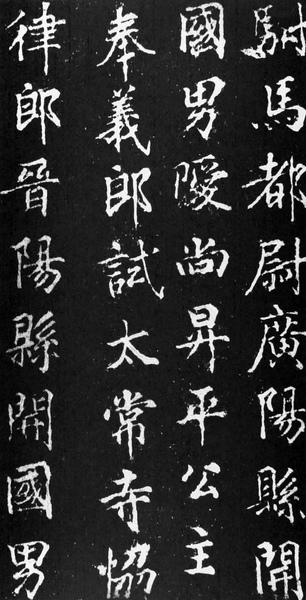 駙馬都尉廣陽縣開
國男曖尚昇平公主
奉義郎試太常寺恊
律郎晉陽縣開國男